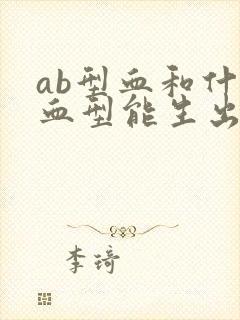 ab型血和什
血型能生出
李琦